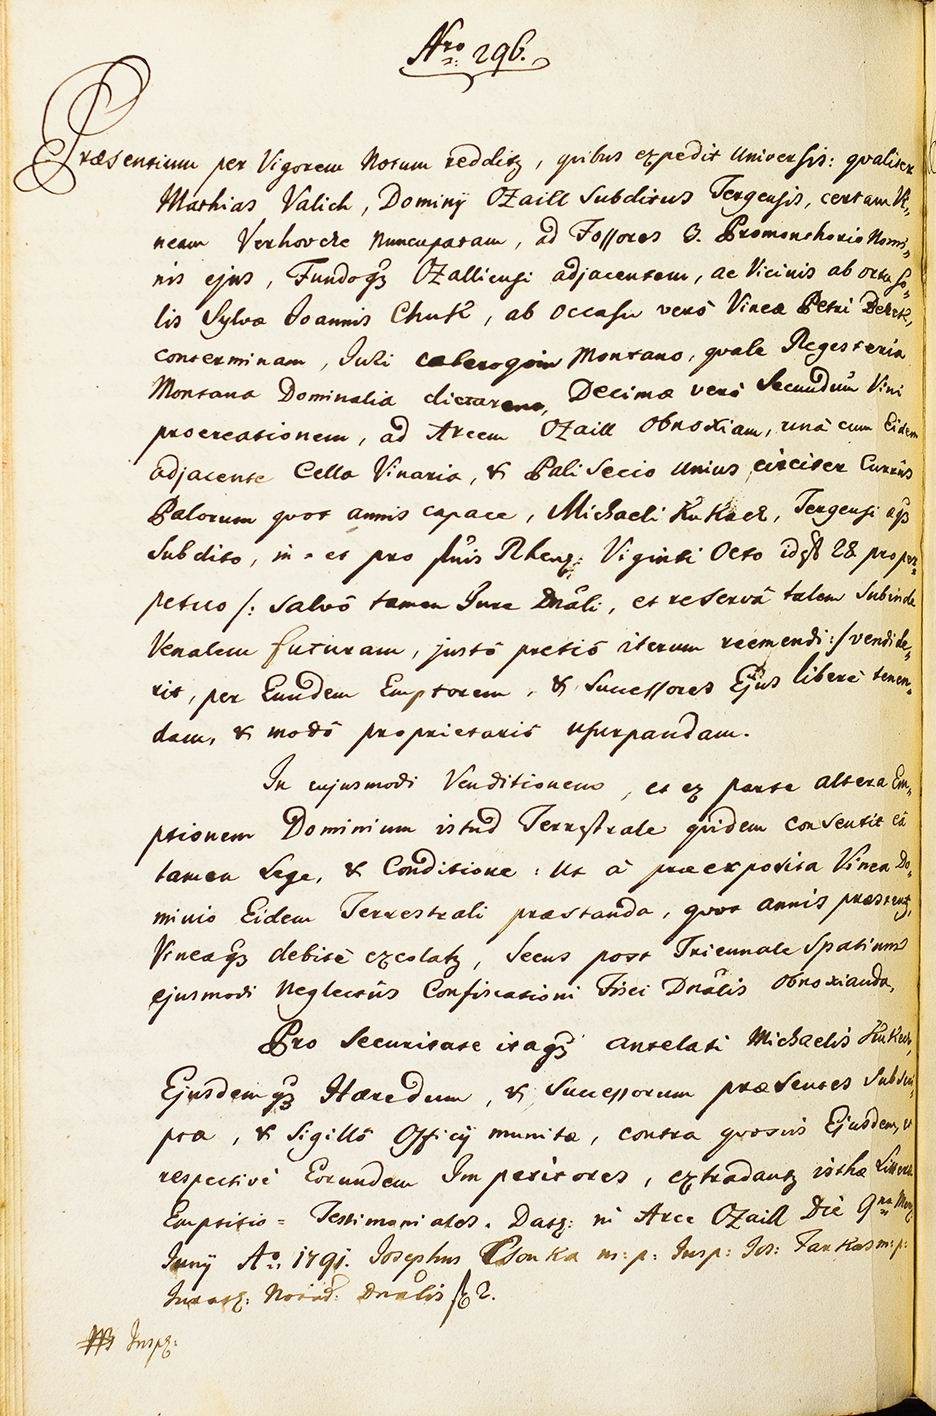 Nro 296.
Præsentium per Vigorem Notum redditz, quibus expedit Universis: qualiter
Mathias Valich, Dominÿ Ozaill Subditus Tergensis, certam Vi„
neam Verhovcze Nuncupatam, ad Fossores 3. Promonthorio Nomi„
nis ejus, Fundoqz Ozalliensi adjacentem, ac Vicinis ab ortu So„
lis Sylvæ Joannis Chuk, ab occasu verò Vineæ Petri
conterminam, Juri Montano, quale Regesteria
Montana Dominalia dictarent, Decimæ verò Secundum Vini
procreationem, ad Arcem Ozaill Obnoxiam, unà cum Eidem
adjacente Cella Vinaria, & Palisecio Unius circiter Currûs
Palorum quot annis capace, Michaeli Kukach, Tergensi æqz
Subdito, in = et pro flnis Rheng: Viginti Octo idest 28 pro per„
petuo /: Salvô tamen Jure Dnali, et reservâ talem Subinde
Venalem futuram, justô pretiô iterum reemendi :/ vendide„
rit, per Eundem Emptorem, & Successores Ejus liberè tenen„
dam, & modô proprietariô usurpandam.
In cujusmodi Venditionem, et ex parte altera Em„
ptionem Dominium istud Terrestrale quidem consentit eâ
tamen Lege, & Conditione: Ut à præexposita Vinea Do„
minio Eidem Terrestrali præstanda, quot annis præstentz,
Vineaqz debitè excolatz, Secus post Triennale Spatium
ejusmodi Neglectûs Confiscationi Fisci Dnalis Obnoxianda,
Pro Securitate itaqz antelati Michaelis Kukach,
Ejusdemqz Hæredum, & Successorum præsentes Subscri„
ptæ, & Sigillô Officÿ munitæ, contra quosvis Ejusdem, v
respectivè Eorundem Impetitores, extradantz isthæ Litteræ
Emptitio = Testimoniales. Datz: in Arce Ozaill Die 9na Mens
Junÿ Ao: 1791. Josephus Csonka m: p: Insp: Jos: Farkas m: p:
Juratz: Notar: Dnalis
Inspz: